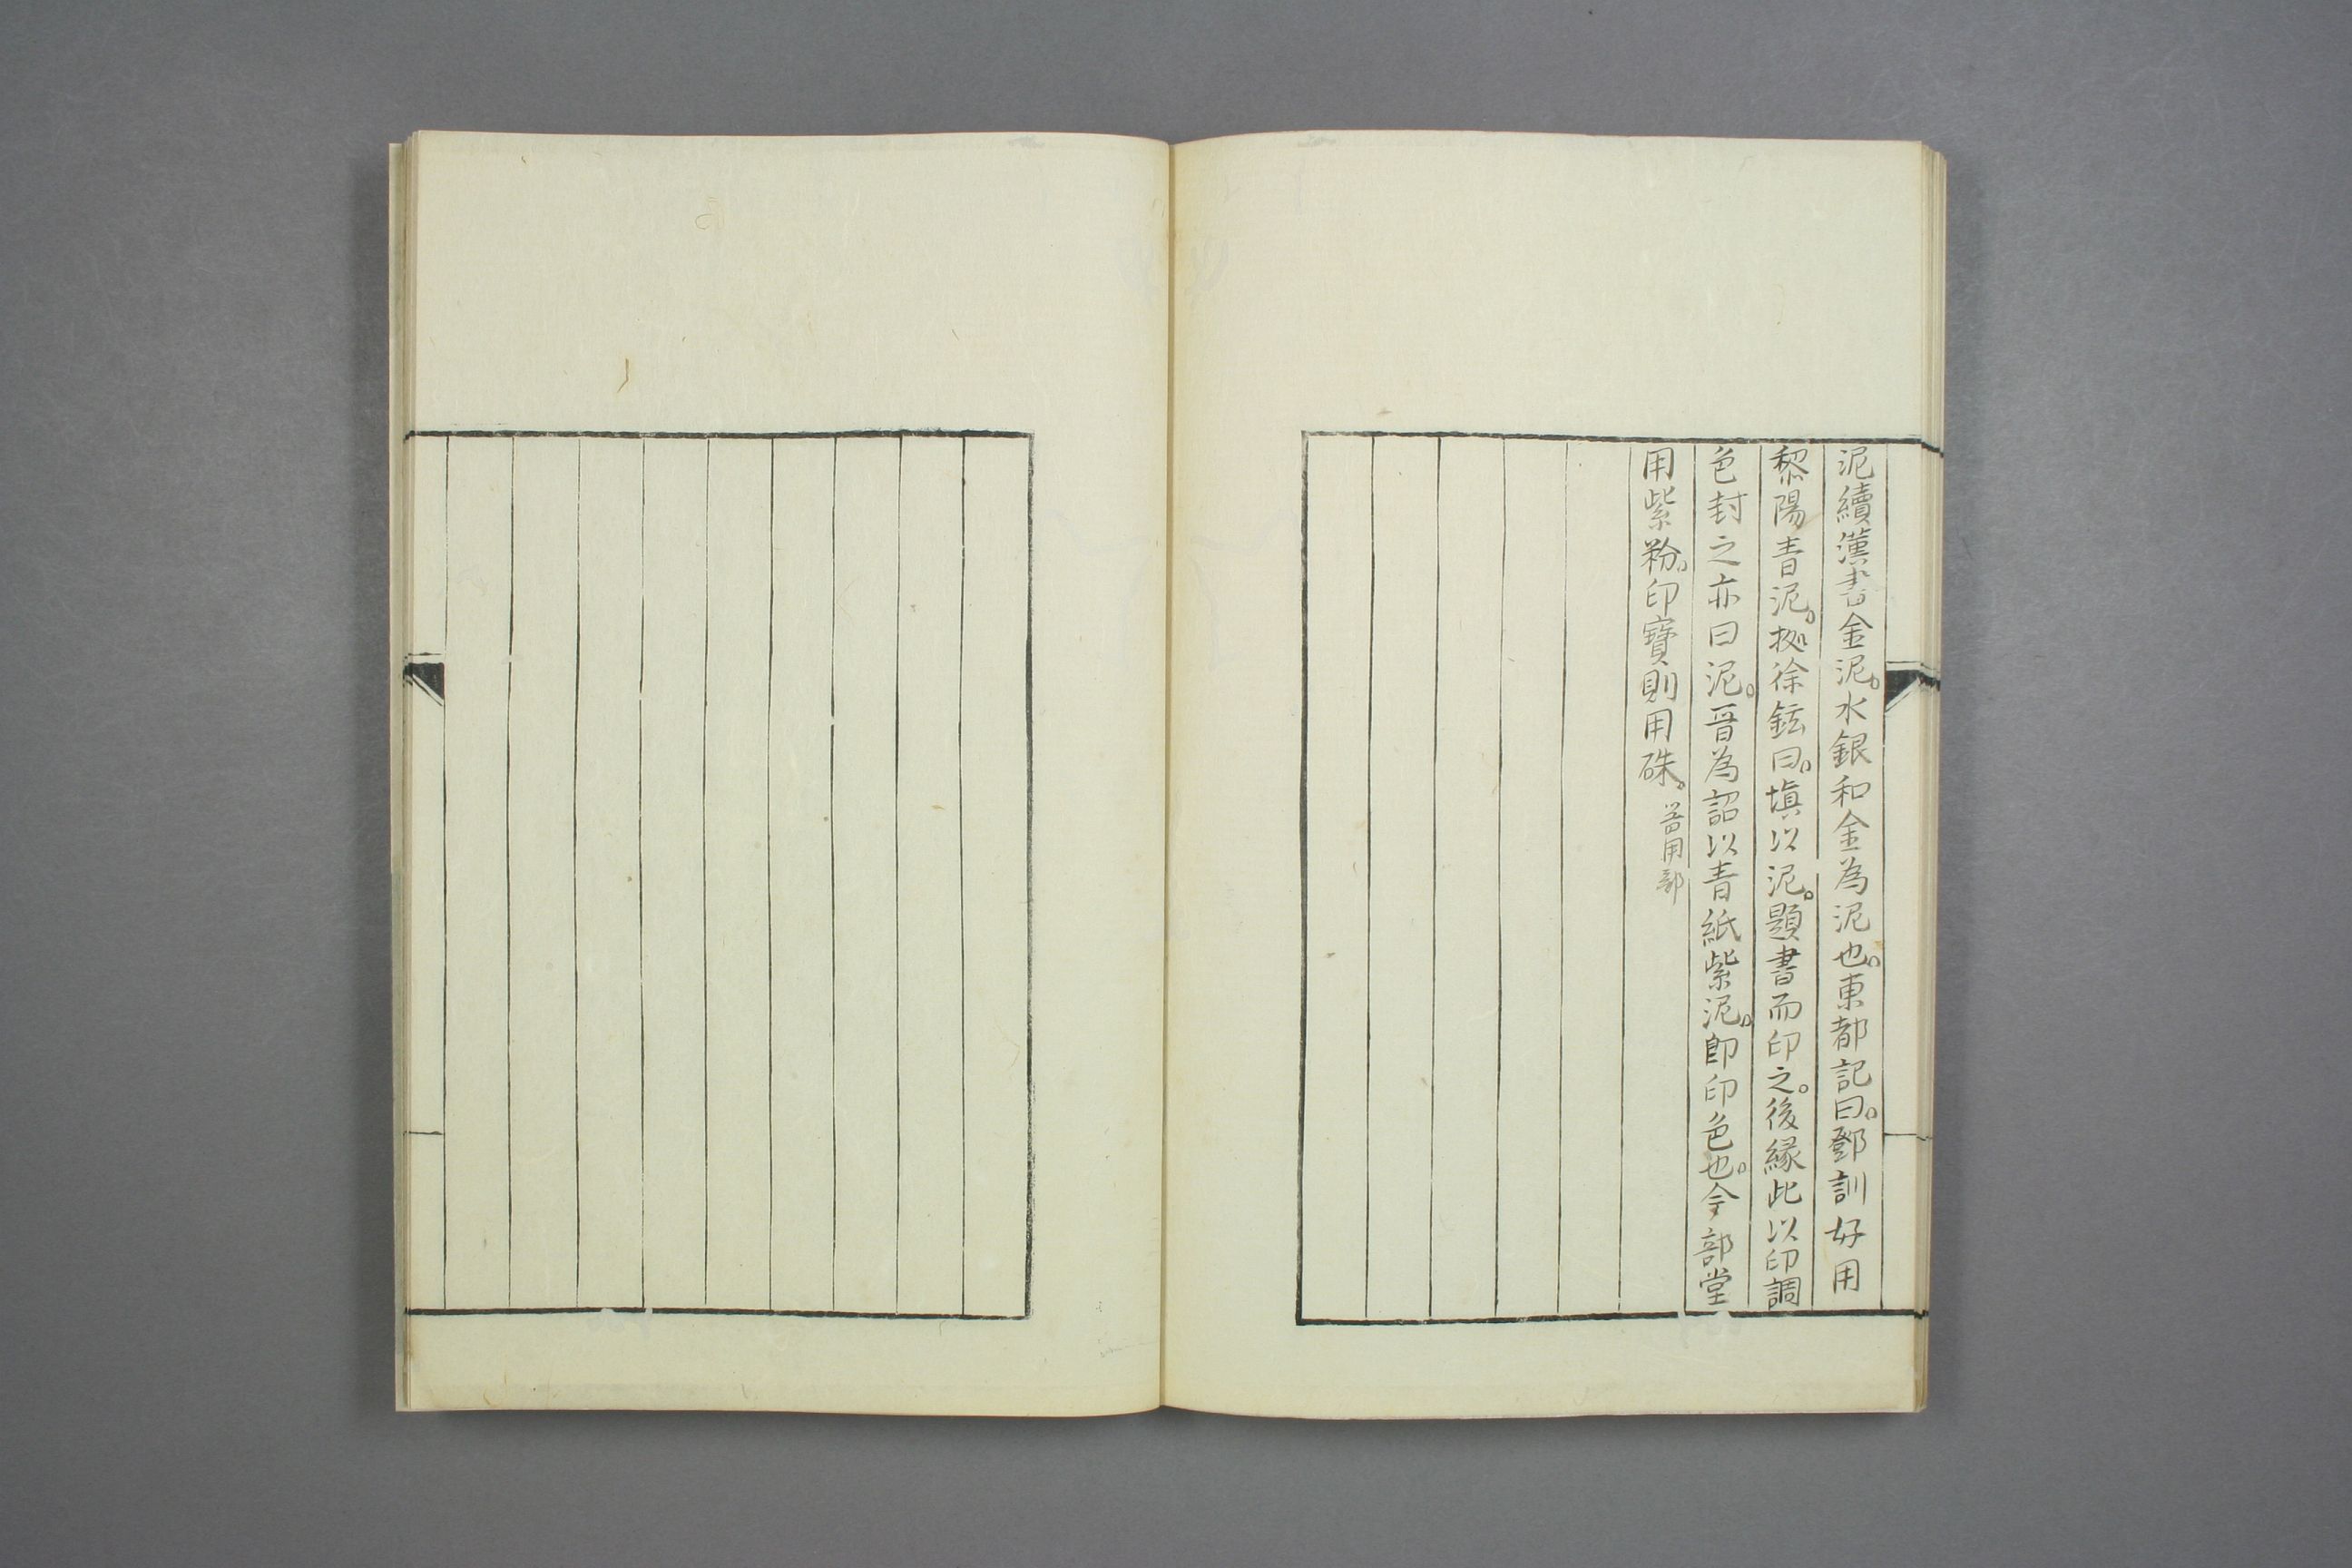 泥續漢書金泥。水銀和金為泥也。東都記曰。鄧訓好用
黎陽青泥。拠徐鉉曰。塡以泥。題書而印之。後縁此以印調
色封之亦曰泥。晉為詔以青紙紫泥。即印色也。今部堂
用紫粉。印寶則用硃。器用部